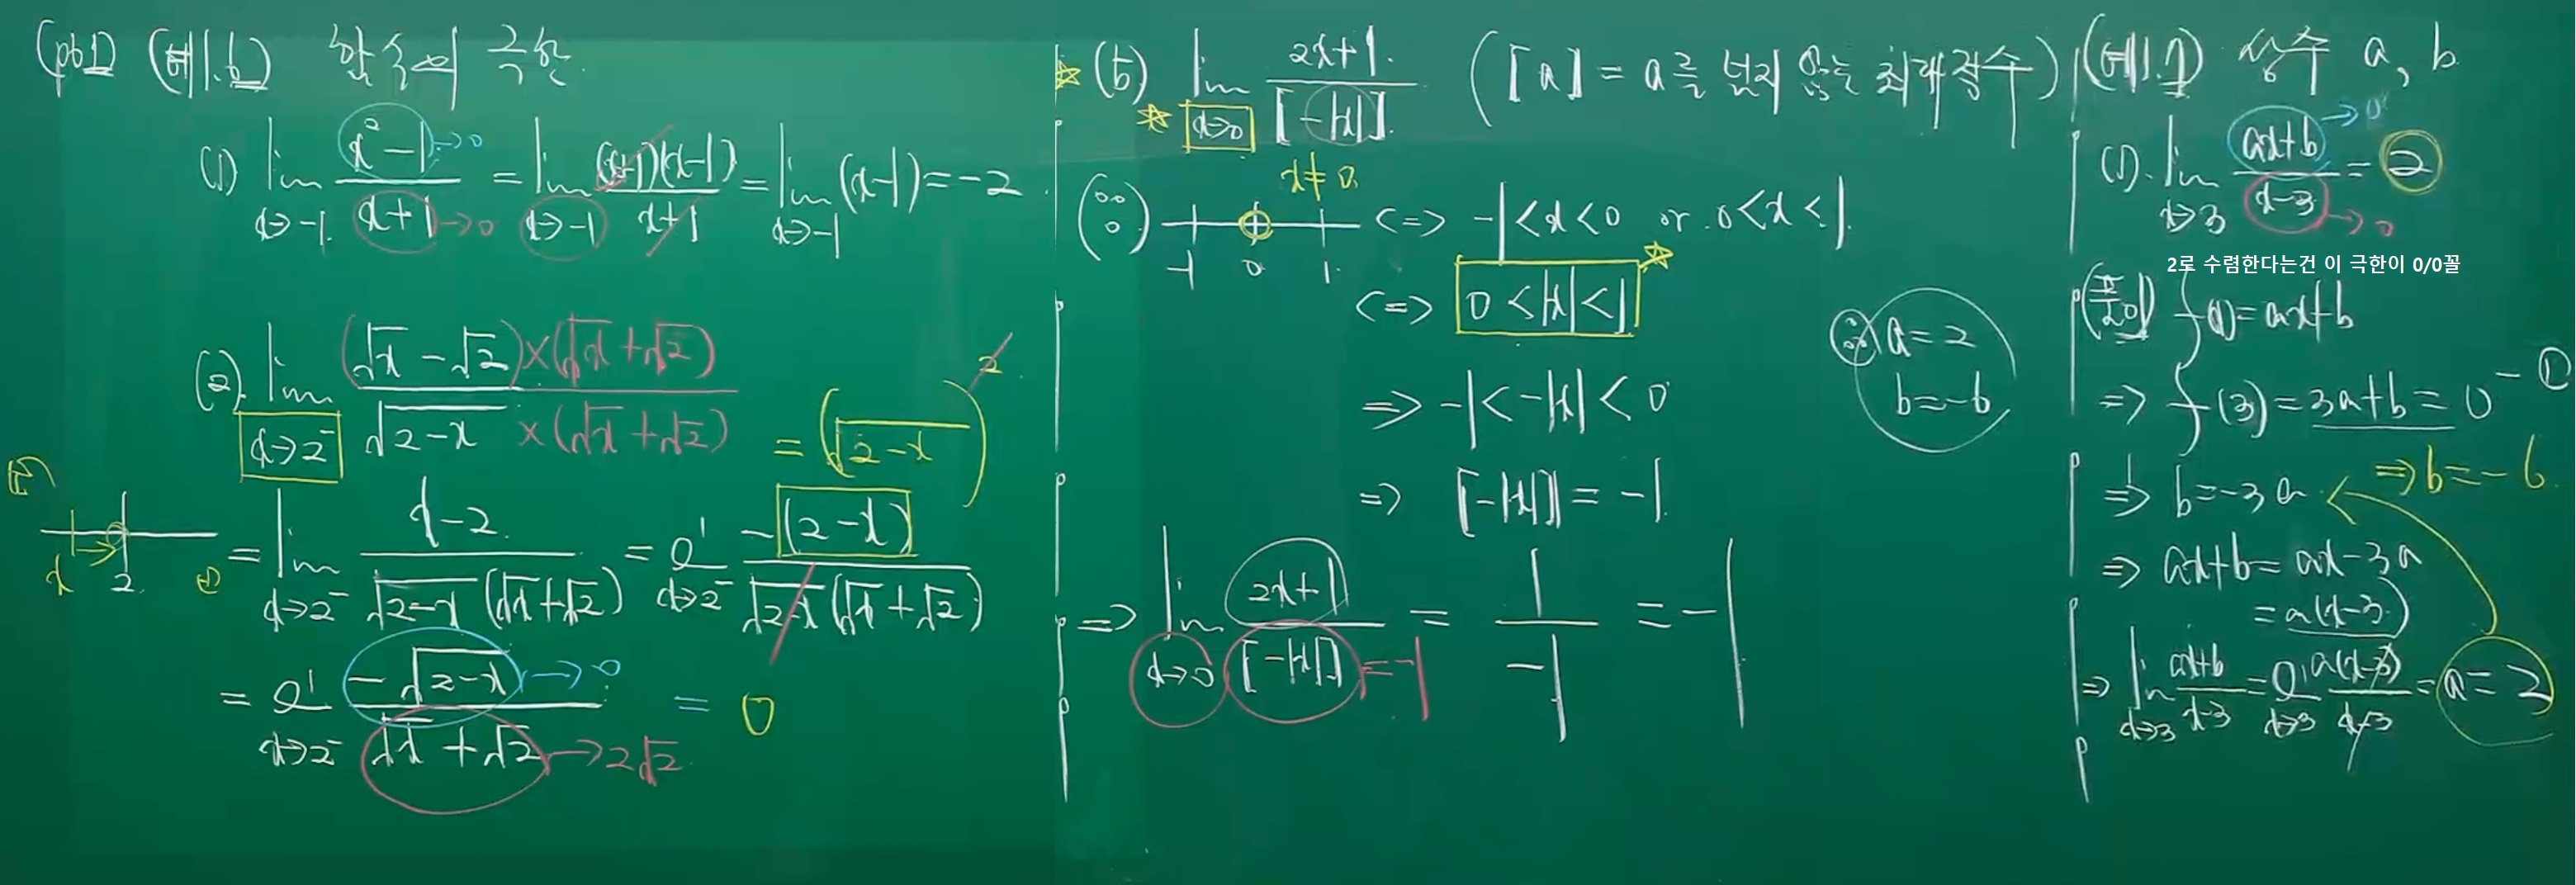 (p61) (예.6) 함수의 극한
(1) lim x→-1 (x²-1)/(x+1) = lim x→-1 (x+1)(x-1)/(x+1) = lim x→-1 (x-1) = -2
→0
→0
(2) lim x→2⁻ (√x - √2)×(√x+√2) / √(2-x) ×(√x+√2)
= (√(2-x))²
x→ 2
= lim x→2⁻ (x-2)/(√(2-x)(√x+√2)) = lim x→2⁻ -(2-x)/(√(2-x)(√x+√2))
= lim x→2⁻ -√(2-x)/(√x+√2) = 0
→0
→2√2
(5) lim x→0 (2x+1)/[-|x|] ([a] = a를 넘지 않는 최대정수)
x≠0
(∵) -1 0 1 <=> -1<x<0 or 0<x<1
<=> 0<|x|<1
=> -1<-|x|<0
=> [-|x|] = -1
=> lim x→0 (2x+1)/[-|x|] = 1/-1 = -1
= -1
∴ a=2
b=-6
(예.7) 상수 a, b
(1). lim x→3 (ax+b)/(x-3) = 2
→0
→0
2로 수렴한다는건 이 극한이 0/0꼴
(풀이) f(x)=ax+b
=> f(3)=3a+b=0 -①
=> b=-3a => b=-6
=> ax+b=ax-3a
=a(x-3)
=> lim x→3 (ax+b)/(x-3) = lim x→3 a(x-3)/(x-3) = a = 2